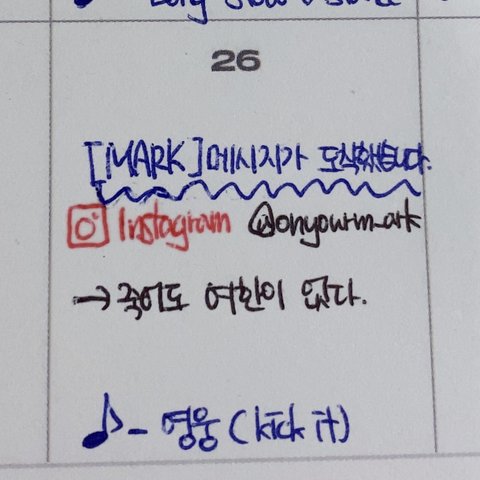 26
[MARK] 메시지가 도착했습니다.
Instagram @onyourm_ark
→ 죽어도 여한이 없다.
♪ - 영웅 (kick it)